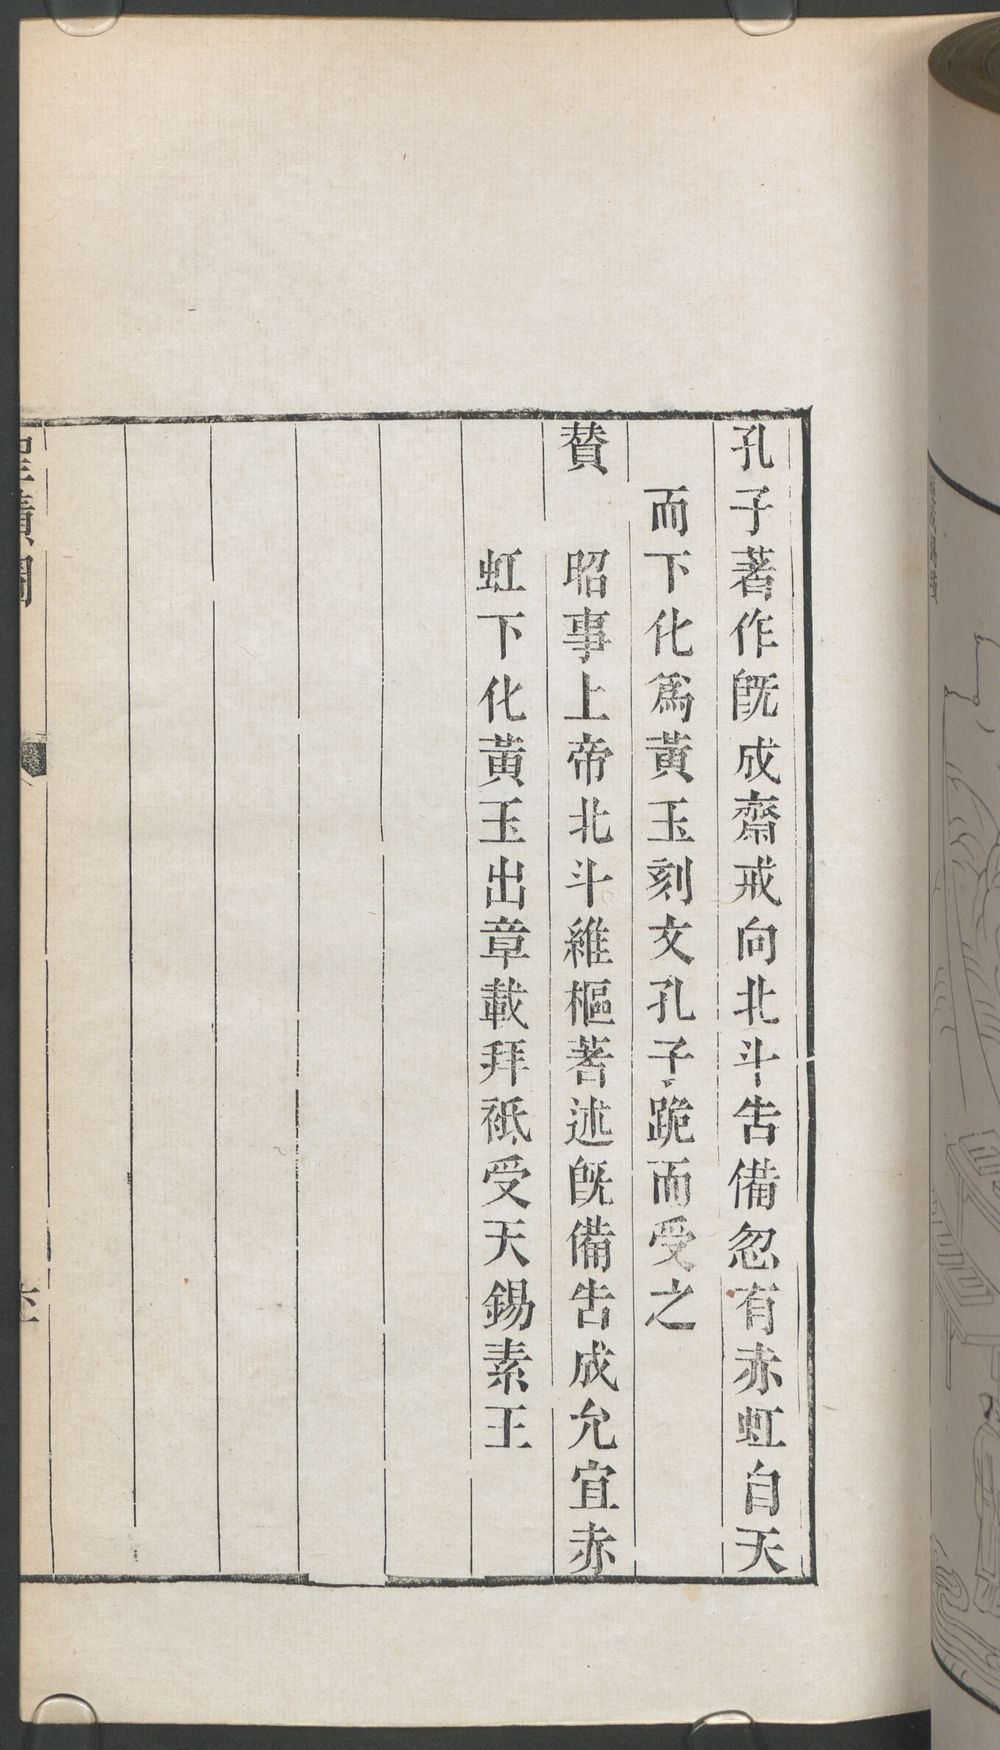 孔子著作旣成齋戒向北斗吿備忽有赤虹自天
而下化爲黃玉刻文孔子跪而受之
贊 昭事上帝北斗維樞著述旣備吿成允宜赤
虹下化黃玉出章載拜祗受天錫素王